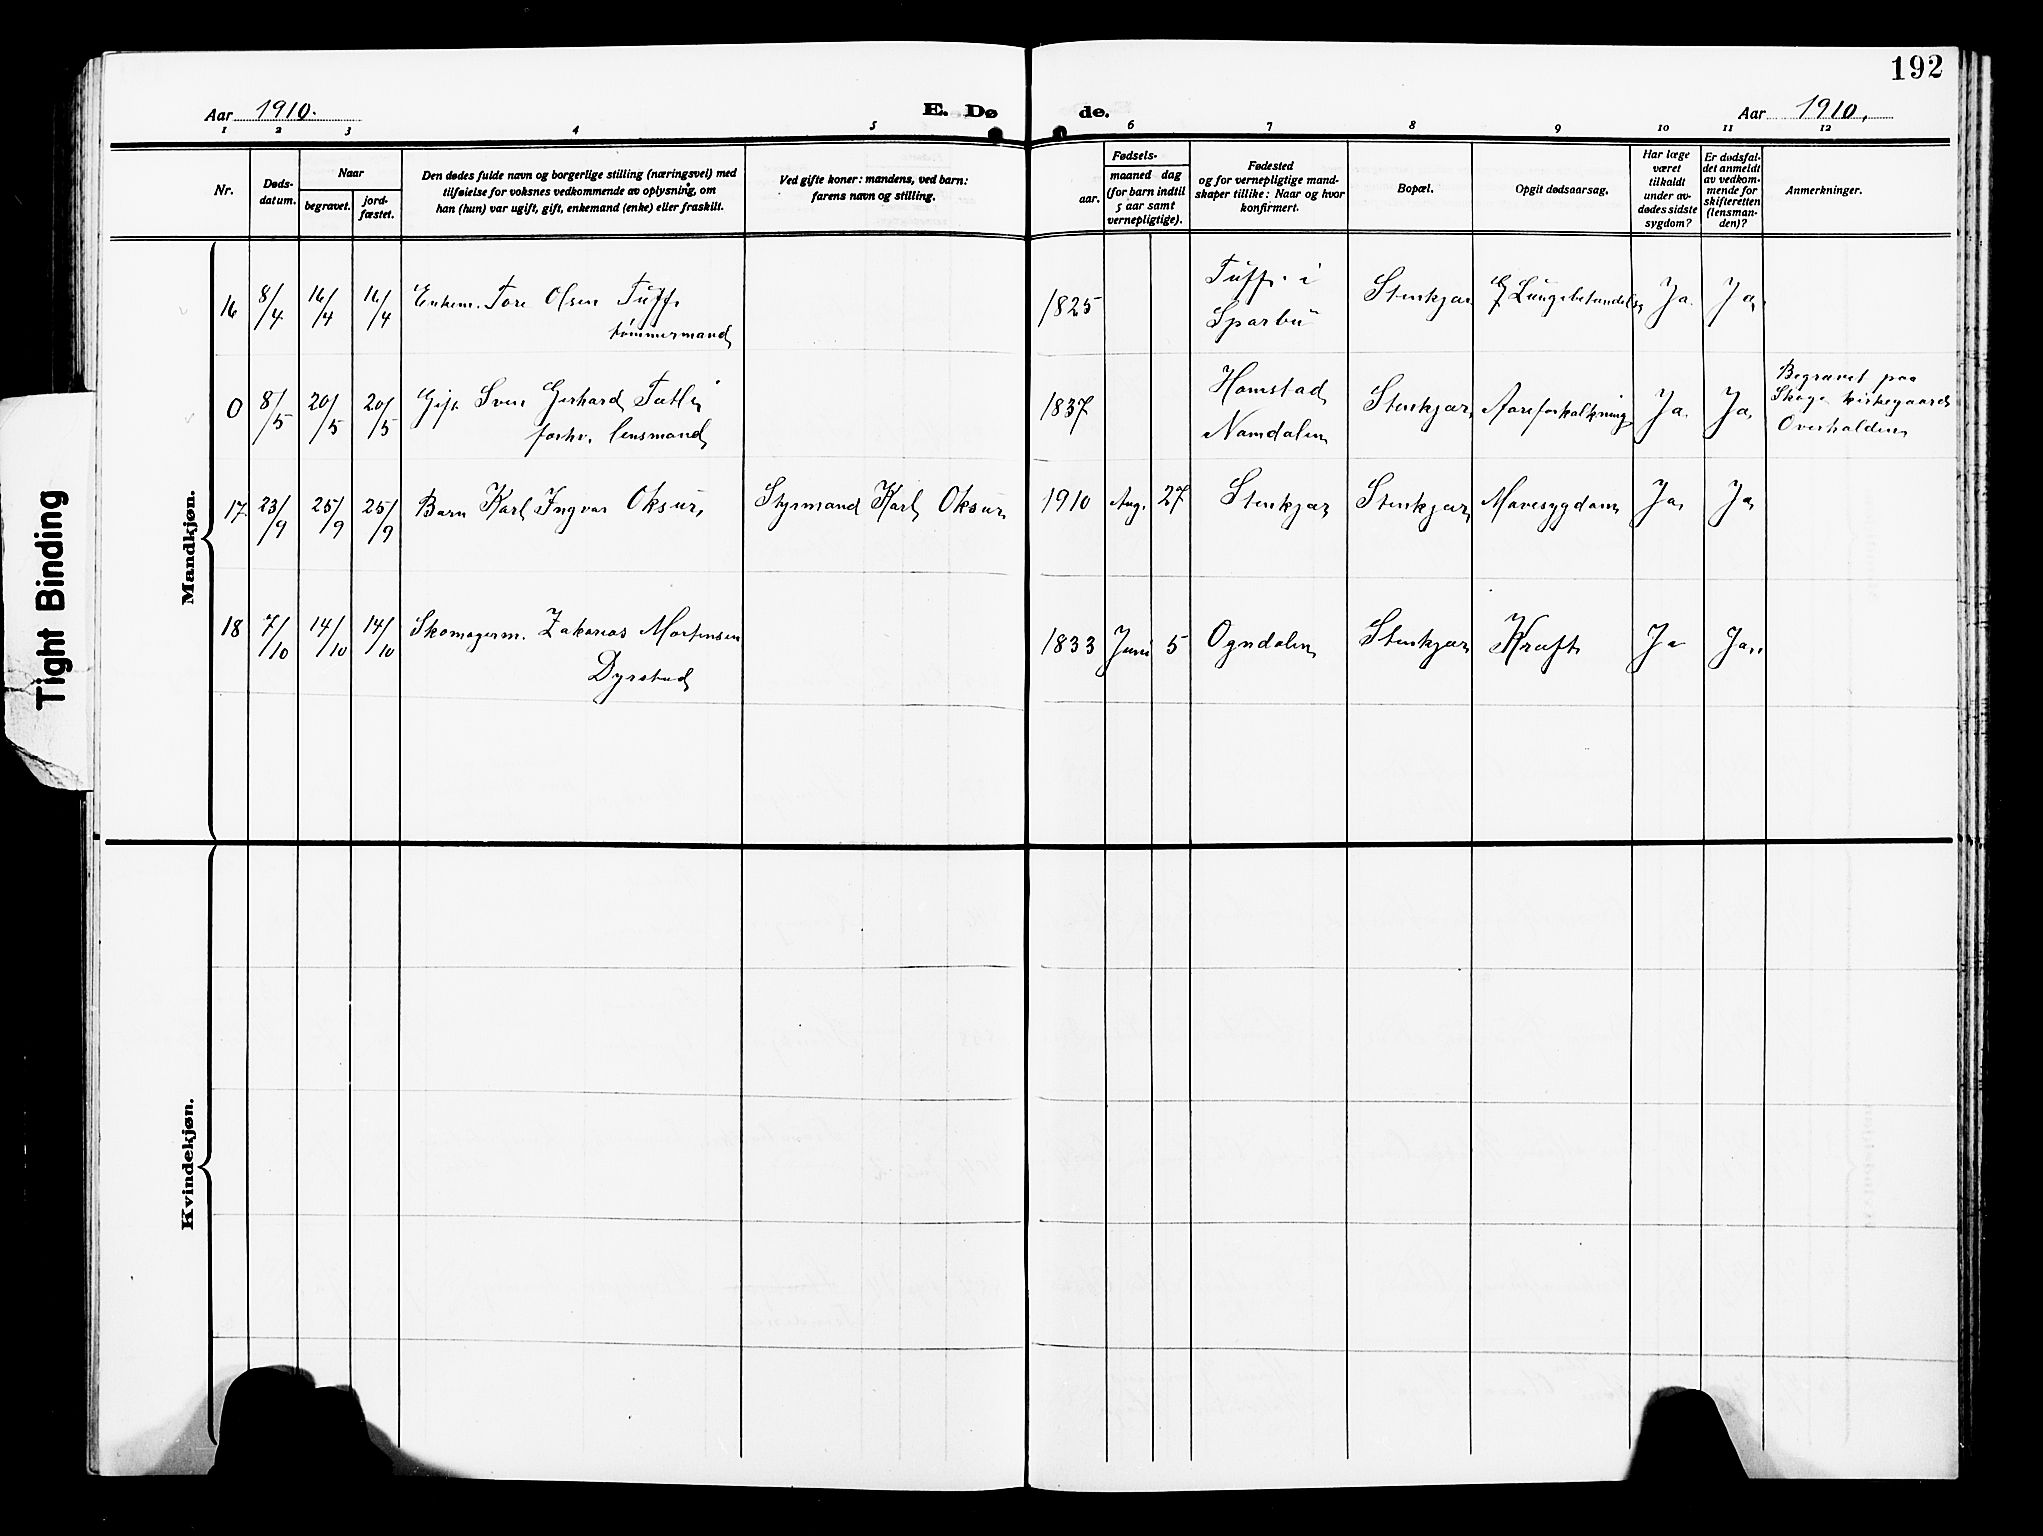 192
Aar 1910.
E. Dø
de.
Aar 1910.
1 2 3 4 5
6 7 8 9 10 11 12
Nr.
Døds-
datum.
Naar
begravet.
jord-
fæstet.
Den dødes fulde navn og borgerlige stilling (næringsvei) med
tilføielse for voksnes vedkommende av oplysning, om
han (hun) var ugift, gift, enkemand (enke) eller fraskilt.
Ved gifte koner: mandens, ved barn:
farens navn og stilling.
Fødsels-
aar.
maaned dag
(for barn indtil
5 aar samt
vernepligtige).
Fødested
og for vernepligtige mand-
skaper tillike: Naar og hvor
konfirmert.
Bopæl.
Opgit dødsaarsag.
Har læge
været
tilkaldt
under av-
dødes sidste
sygdom?
Er dødsfal-
det anmeldt
av vedkom-
mende for
skifteretten
(lensman-
den)?
Anmerkninger.
Mandkjøn.
16 8/4 16/4 16/4 Enkem. Tore Olsen Tuff
tømmermand
1825 Tuff i
Sparbu
Stenkjær Lungebetændelse Ja. Ja.
0 8/5 20/5 20/5 Gift Sven Gerhard
forhv. lensmand
1837 Homstad
Namdalen
Stenkjær Aareforkalkning Ja. Ja.
Begravet paa
Skage kirkegaard
Overhalden
17. 23/9 25/9 25/9 Barn Karl Ingvar Oksur Styrmand Karl Oksur
1910 Aug. 27 Stenkjær Stenkjær Mavesygdom Ja Ja
18 7/10 14/10 14/10 Skomagerm. Zakarias Mortensen
Dyrstad
1833 Juni 5 Ogndalen Stenkjær Kræft Ja Ja.
Kvindekjøn.
Tight Binding